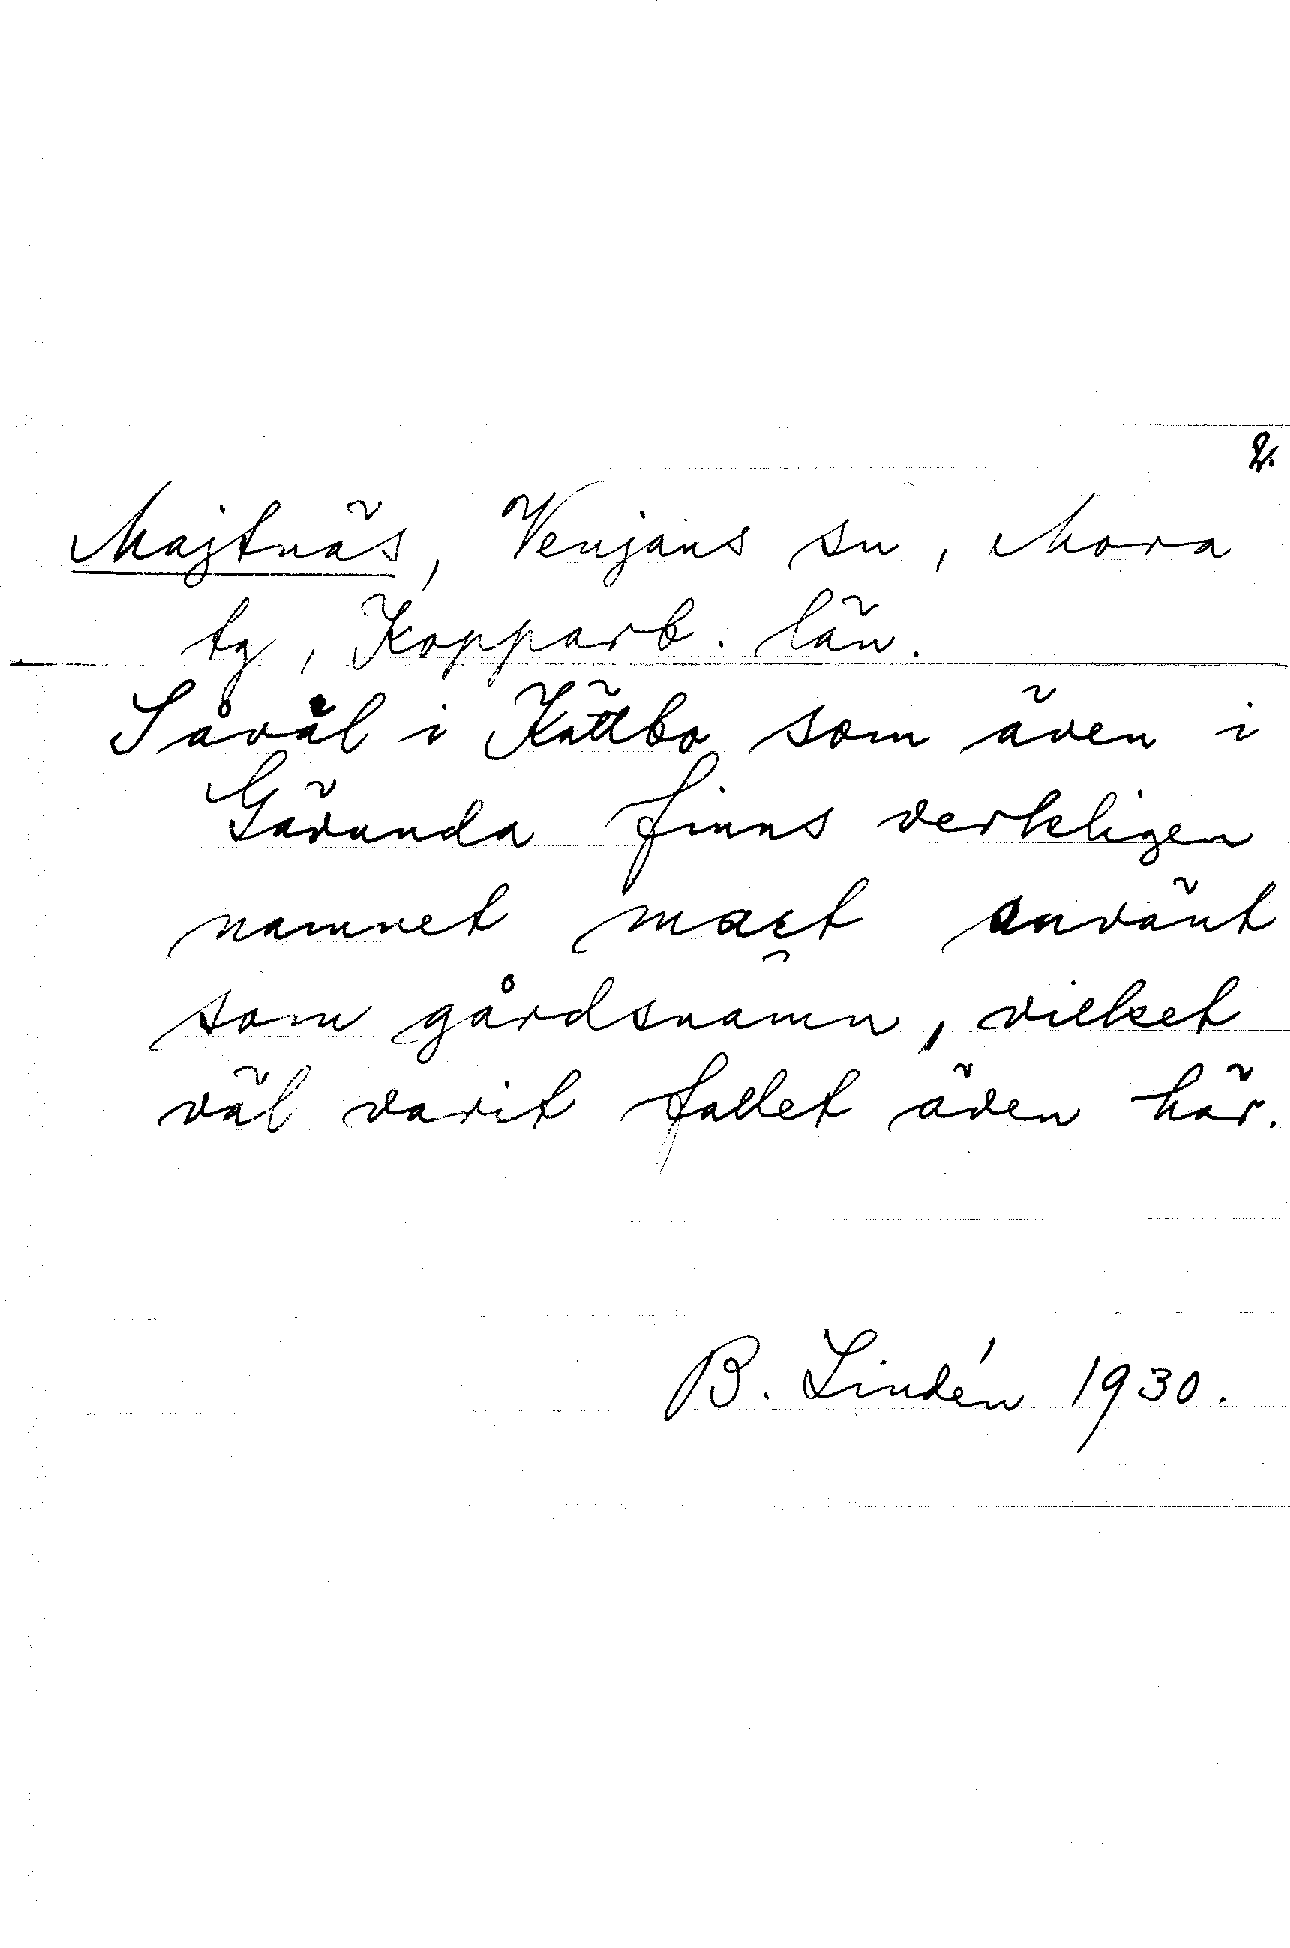 2.
Majtnäs, Venjans sn, Mora
tg, Kopparb. län.
Såväl i Kättbo som även i
Gävunda finns verkligen
namnet mact använt
som gårdsnamn, vilket
väl varit fallet även här.
B. Lindén 1930.